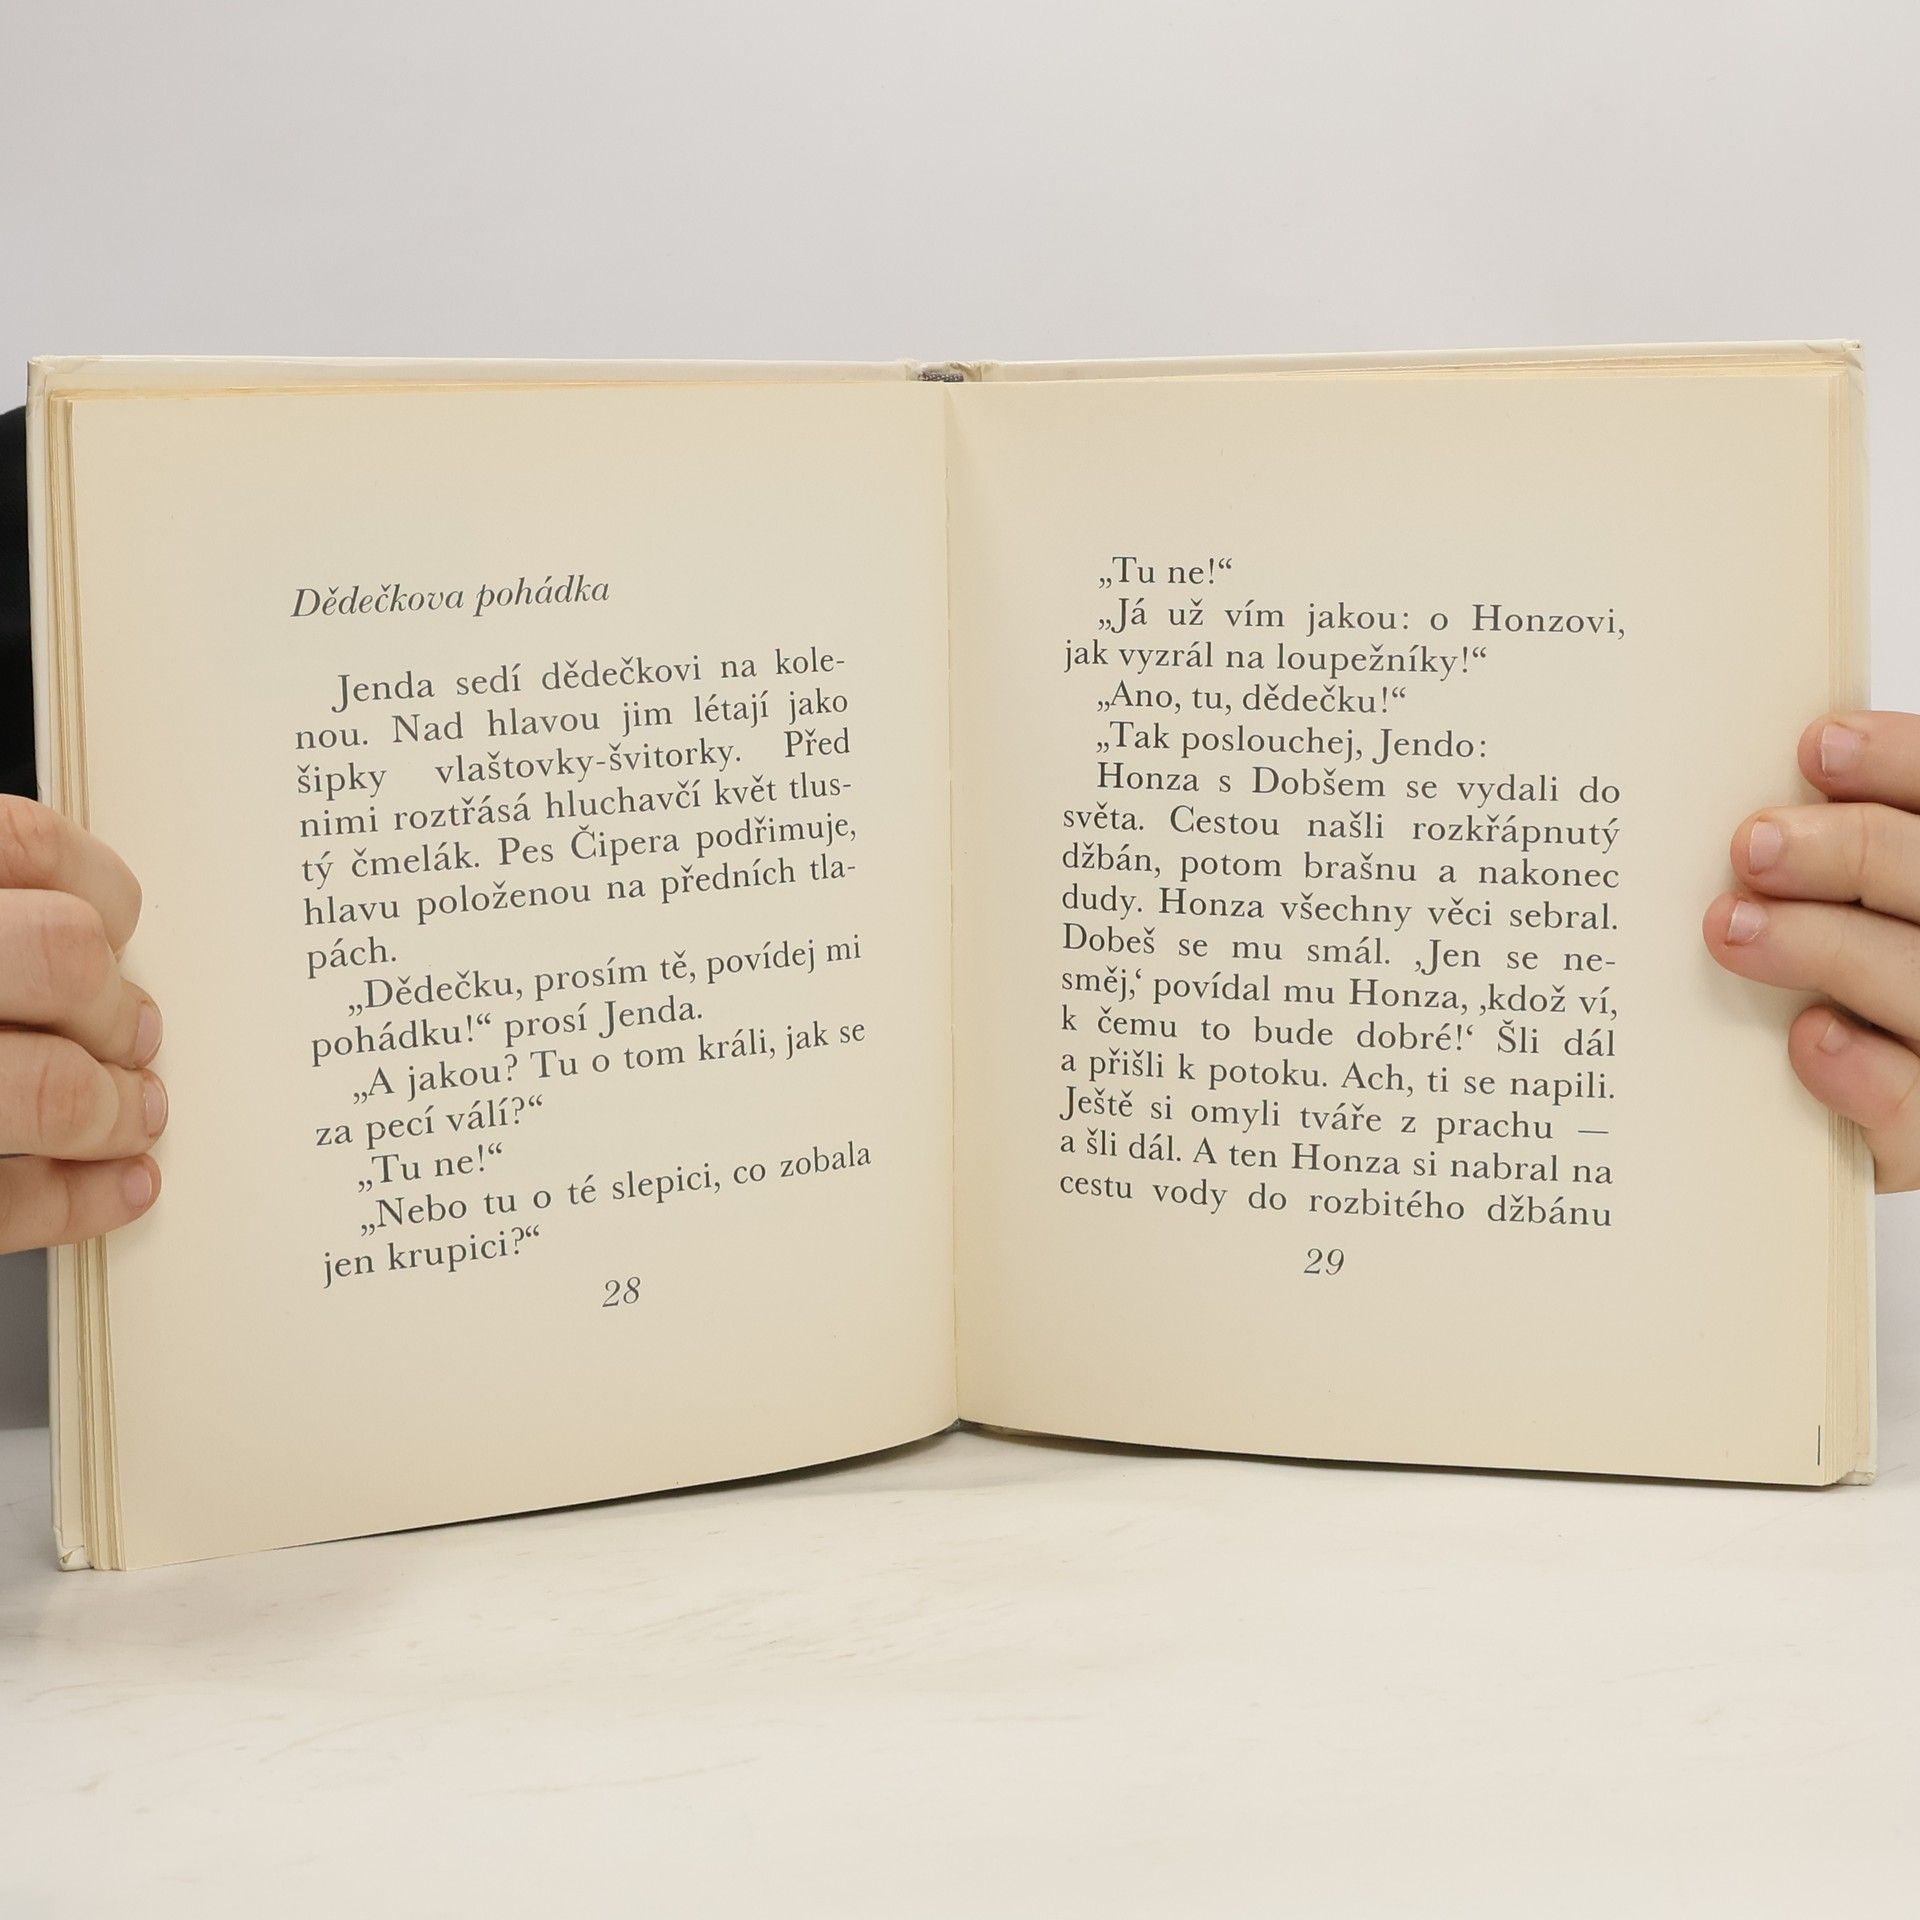 Dědečkova pohádka
Jenda sedí dědečkovi na kole-
nou. Nad hlavou jim létají jako
šipky vlaštovky-švitorky. Před
nimi roztřásá hluchavčí květ tlus-
tý čmelák. Pes Čipera podřimuje,
hlavu položenou na předních tla-
pách.
„Dědečku, prosím tě, povídej mi
pohádku!“ prosí Jenda.
„A jakou? Tu o tom králi, jak se
za pecí válí?“
„Tu ne!“
„Nebo tu o té slepici, co zobala
jen krupici?“
28
„Tu ne!“
„Já už vím jakou: o Honzovi,
jak vyzrál na loupežníky!“
„Ano, tu, dědečku!“
„Tak poslouchej, Jendo:
Honza s Dobšem se vydali do
světa. Cestou našli rozkřápnutý
džbán, potom brašnu a nakonec
dudy. Honza všechny věci sebral.
Dobeš se mu smál. ‚Jen se ne-
směj,‘ povídal mu Honza, ‚kdož ví,
k čemu to bude dobré!‘ Šli dál
a přišli k potoku. Ach, ti se napili.
Ještě si omyli tváře z prachu —
a šli dál. A ten Honza si nabral na
cestu vody do rozbitého džbánu
29